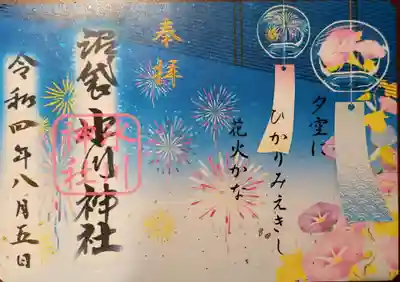 奉拝
夕空に
ひかりみえきし
花火かな
沼袋氷川神社
令和四年八月五日